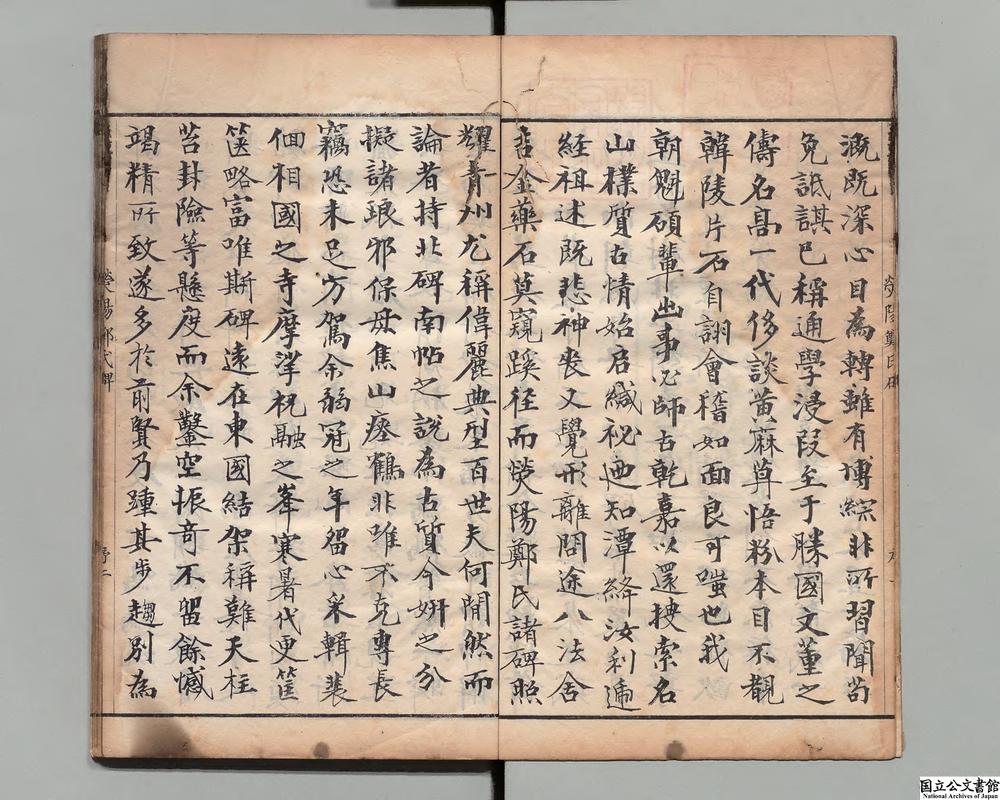 漑既深心目為轉雖有博綜非所習聞苟
免詆諆已稱通學浸叚至于勝國文董之
儔名高一代侈談黃麻草悟粉本目不覩
韓陵片石自詡會稽如面良可嗤也我
朝魁碩輩出事必師古乾嘉以還搜索名
山樸質古情始启緘祕迺知潭絳汝利遞
経祖述既悲神喪又覺形離問途八法舍
吉金藥石莫窺蹊径而熒陽鄭氏諸碑照
耀青州尤稱偉麗典型百世夫何閒然而
論者持北碑南帖之說為古質今妍之分
擬諸琅邪保母焦山瘞鶴非唯不克專長
竊恐未足方駕余弱冠之年留心采輯裴
佪相國之寺摩挲祝融之峯寒暑代更筐
篋略富唯斯碑遠在東國結架稱難天柱
苔封險等懸度而余鑿空振奇不留餘憾
竭精所致遂多於前賢乃踵其步趨別為
滎陽鄭氏碑
序二
国立公文書館
National Archives of Japan